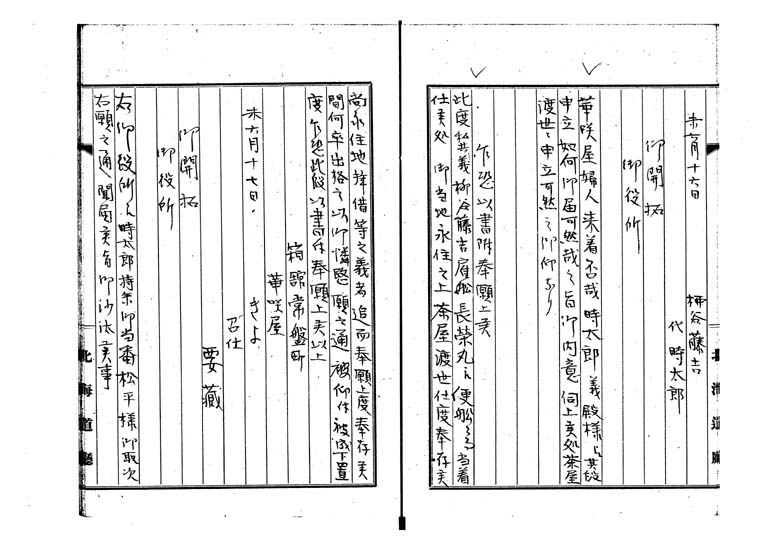 未六月十六日
柳谷藤吉
代 時太郎
御開拓
御役所
華咲屋婦人来着否哉時太郎義殿様ゟ其段
申立如何御届可然哉之旨御内意伺上候処茶屋
渡世と申立可然之御仰なり
乍恐以書附奉願上候
此度私共義柳谷藤吉雇船長栄丸ゟ便船ニ而当着
仕候処御当地永住之上茶屋渡世仕度奉存候
尚永住地拝借等之義者追而奉願上度奉存候
間何卒出格之以御憐愍願之通被仰付被成下置
度乍恐此段以書付奉願上候以上
箱館常盤町
華咲屋
未六月十七日
きよ
召仕
要蔵
御開拓
御役所
右御役所ゟ時太郎持参御当番松平様御取次
右願之通聞届候旨御沙汰候事
北海道廳
北海道廳